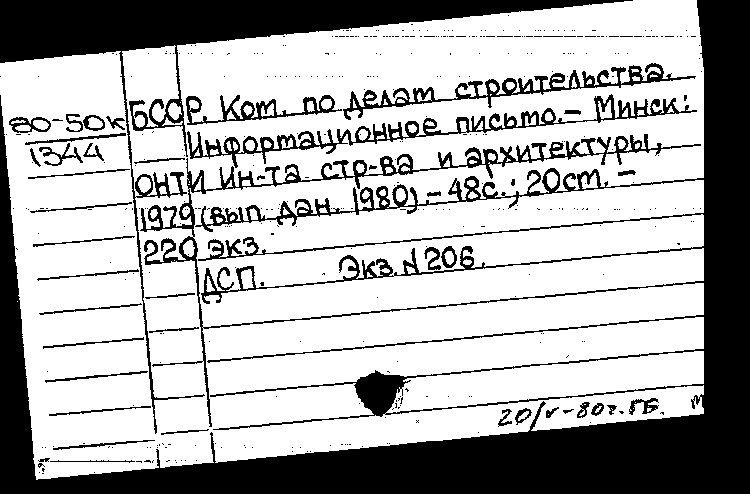 80-50к
1344
БССР. Ком. по делам строительства.
Информационное письмо.- Минск:
ОНТИ Ин-та стр-ва и архитектуры,
1979 (вып. дан. 1980).- 48с.; 20см. -
220 экз.
ДСП. Экз. N 206.
20/V-80г. ГБ. М